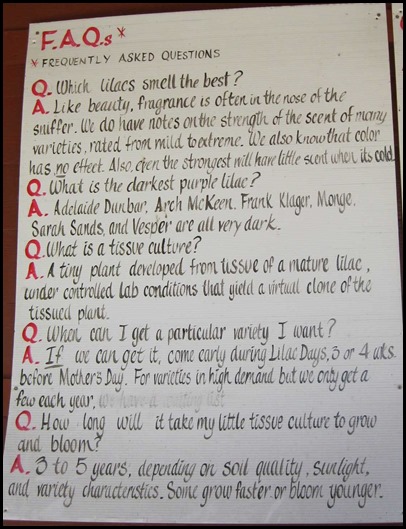 F.A.Q.s*
* FREQUENTLY ASKED QUESTIONS
Q. Which lilacs smell the best?
A. Like beauty, fragrance is often in the nose of the
sniffer. We do have notes on the strength of the scent of many
varieties, rated from mild to extreme. We also know that color
has no effect. Also, even the strongest will have little scent when its cold.
Q. What is the darkest purple lilac?
A. Adelaide Dunbar, Arch McKean, Frank Klager, Monge,
Sarah Sands, and Vesper are all very dark.
Q. What is a tissue culture?
A. A tiny plant developed from tissue of a mature lilac,
under controlled lab conditions that yield a virtual clone of the
tissued plant.
Q. When can I get a particular variety I want?
A. If we can get it, come early during Lilac Days, 3 or 4 wks.
before Mother's Day. For varieties in high demand but we only get a
few each year, we have a waiting list.
Q. How long will it take my little tissue culture to grow
and bloom?
A. 3 to 5 years, depending on soil quality, sunlight,
and variety characteristics. Some grow faster or bloom younger.